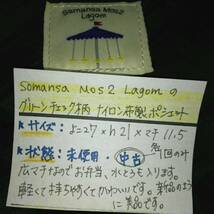 somansa
Mos2
Lagom
Somansa Mos2 Lagom の
グリーンチェック柄 ナイロン布製 ポシェット
サイズ: よこ27×h21×マチ11.5
状態: 未使用・中古 1回のみ
広マチなのでお弁当、水とうも入ります。
軽くて持ちやすくてかわいいです。新品のよう
に美品です。